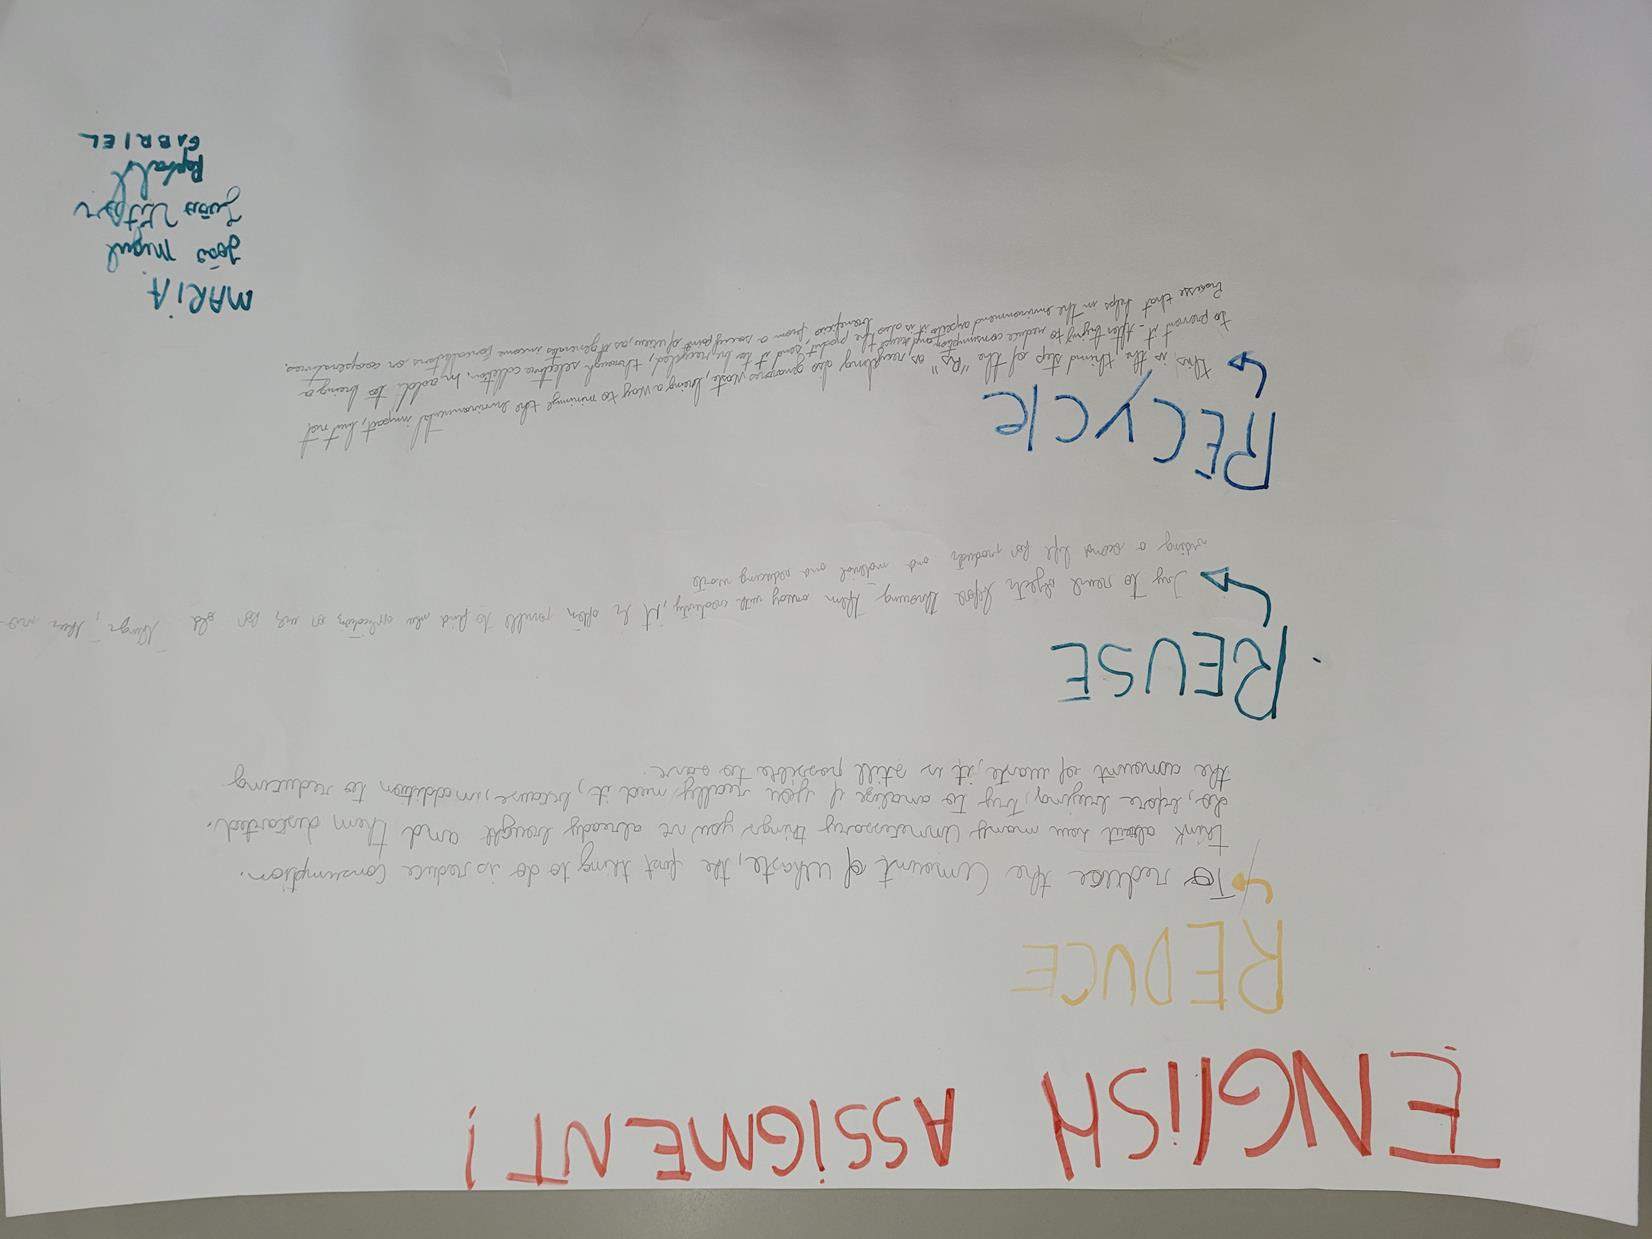 ENGLISH ASSIGMENT!
REDUCE
To reduce the Amount of Whaste, the first thing to do is reduce Consumption.
think about how many Unnecessary things you've already bought and them discarted.
do, before buying, try to analize if you really need it, because, in addition to reducing
the amount of waste, it is still possible to save.
REUSE
Try to reuse objects before throwing them away with creativity, it is often possible to find new applications, or uses, for old "things", then
a second life for products and material and reducing waste
RECYCLE
This is the third step of the "Rs" as recycling also generates waste, being a way to minimize the environmental impact, but not
to prevent it - After trying to reduce consumption and reuse the product, send it to be recycled, through selective collection. In addi to being a
that helps in the it is also from a point of view, as it generates income for or cooperatives.
MARIA
João Miguel
João Vitor
GABRIEL